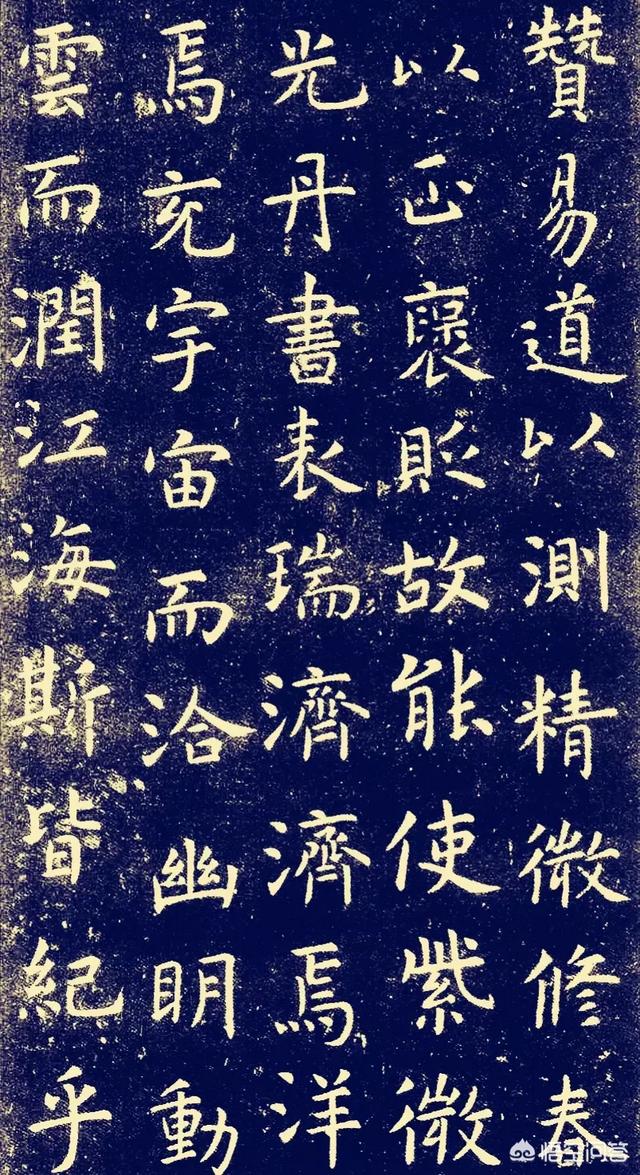 贊易道以測精微修春
以正褒貶故能使紫微
光丹書表瑞濟濟焉洋
焉充宇宙而洽幽明動
雲而潤江海斯皆紀乎
悟空问答